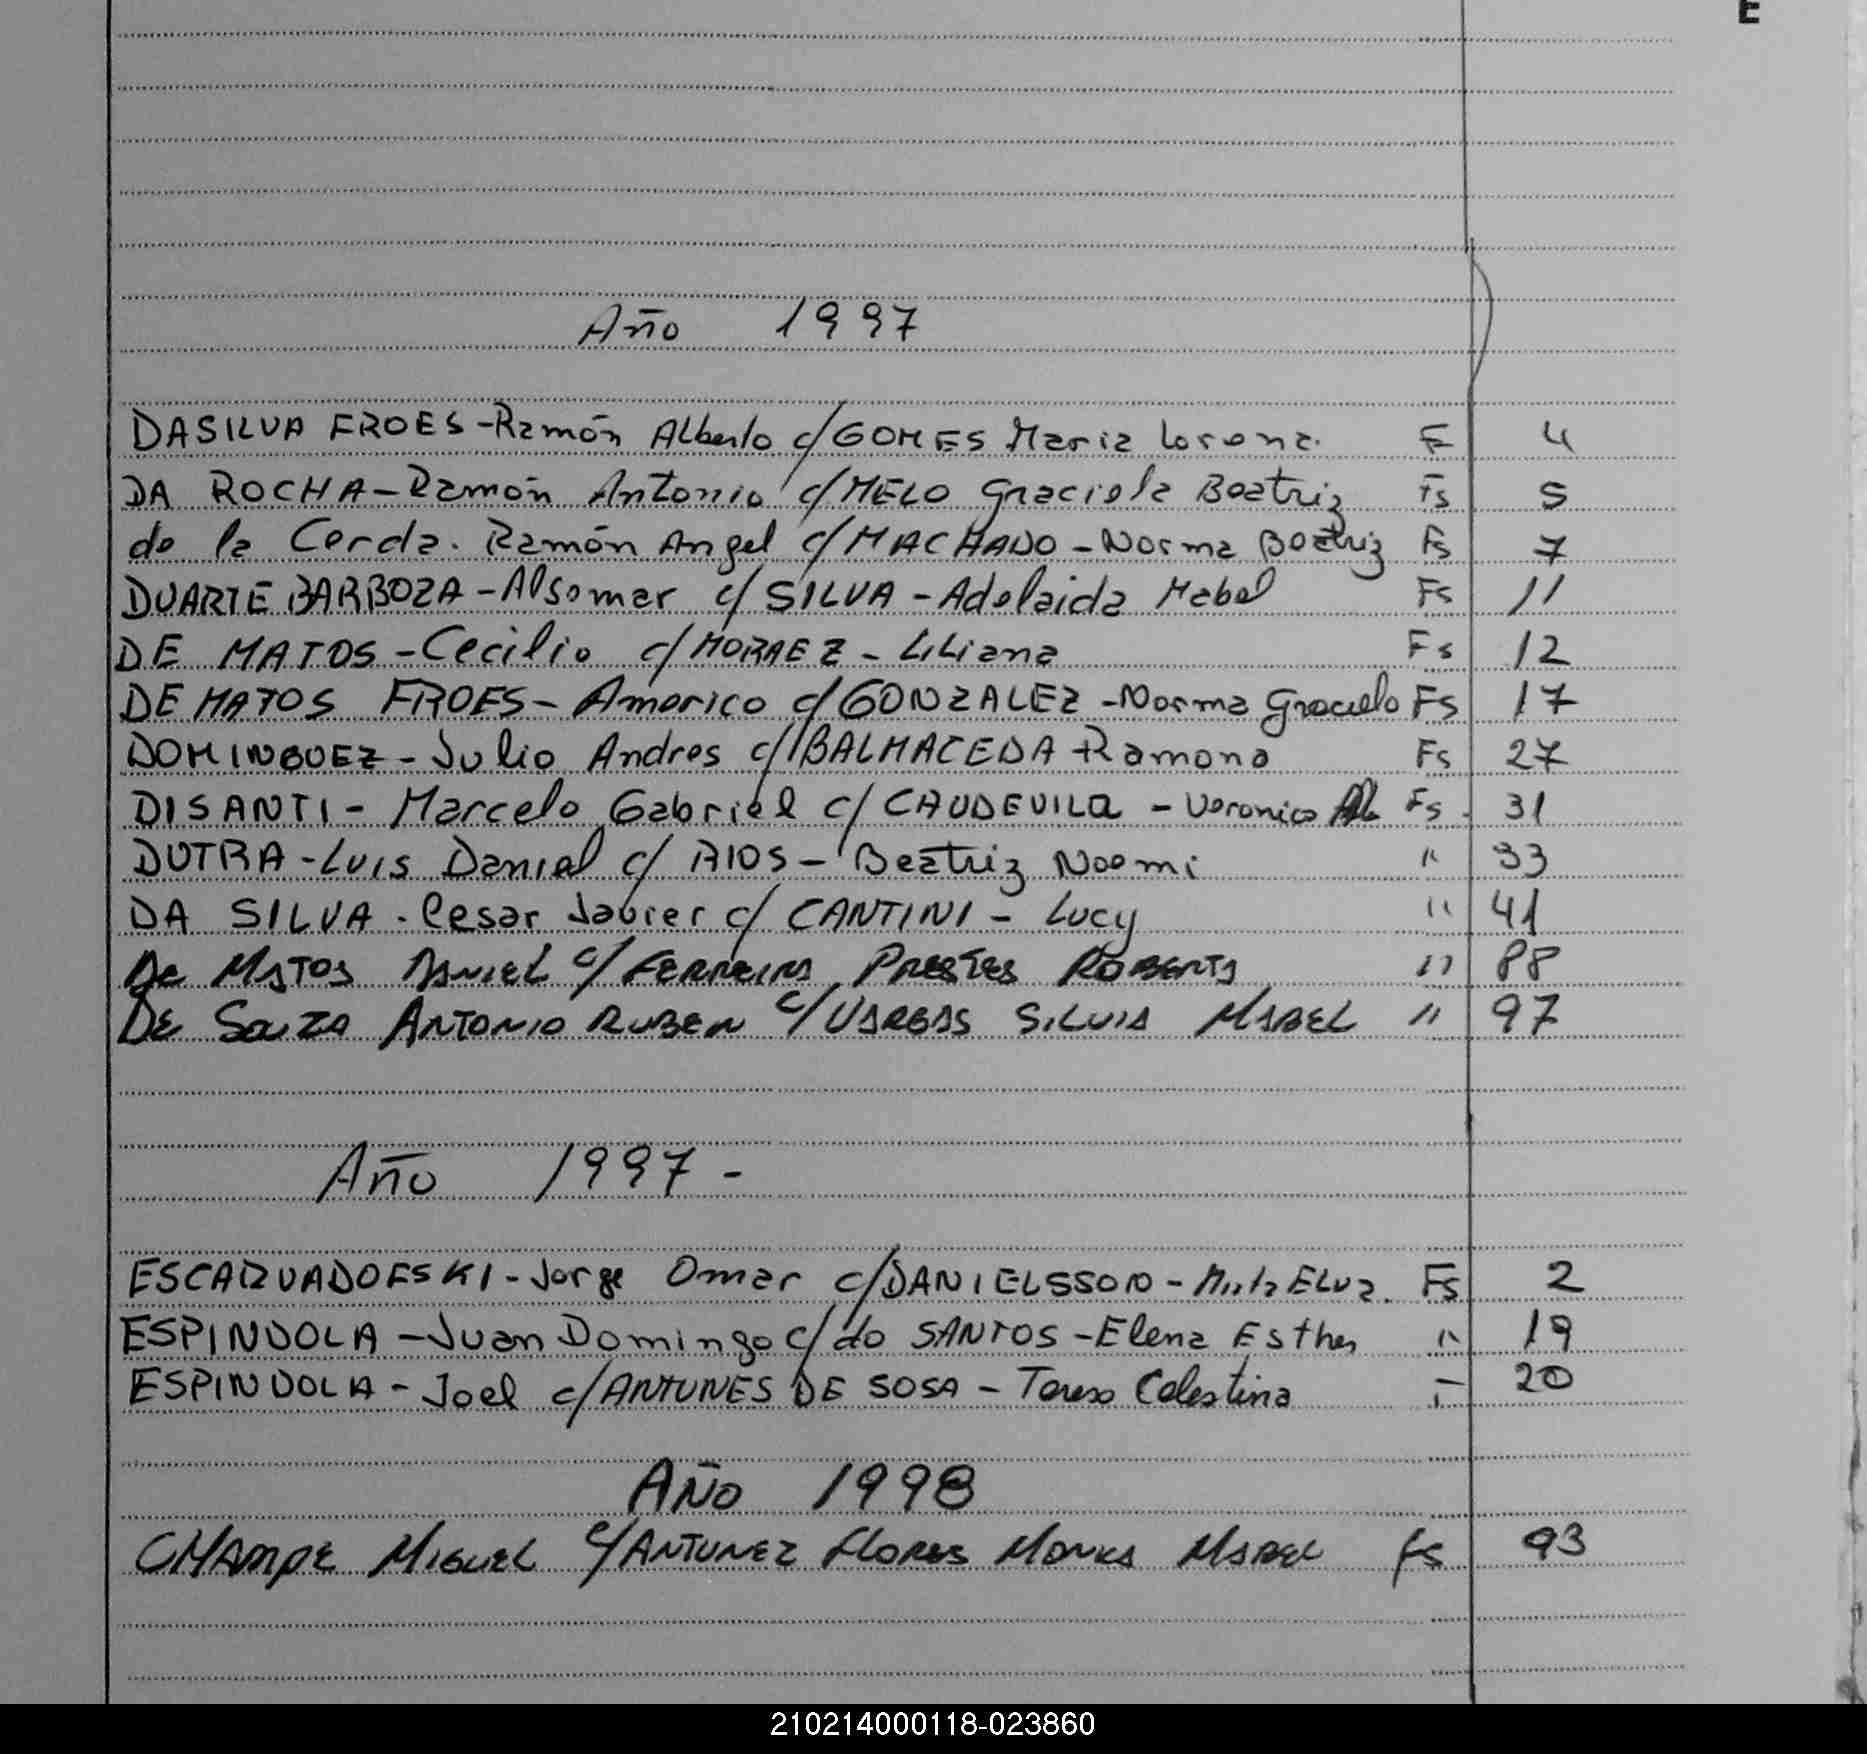 E
Año 1997
DASILVA FROES-Ramón Alberto c/GOMES Maria Lorena. F 4
DA ROCHA-Ramón Antonio c/MELO Graciela Beatriz Fs 5
de la Cerda. Ramón Angel c/MACHADO-Norma Beatriz Fs 7
DUARTE BARBOZA-Alsomar c/SILVA-Adelaida Mabel Fs 11
DE MATOS-Cecilio c/MORAEZ-Liliana Fs 12
DE MATOS FROES-Americo c/GONZALEZ-Norma Graciela Fs 17
DOMINGUEZ-Julio Andres c/BALMACEDA-Ramona Fs 27
DISANTI-Marcelo Gabriel c/CAUDEVILA-Veronica Fs. 31
DUTRA-Luis Daniel c/RIOS-Beatriz Noemi " 33
DA SILVA-Cesar Javier c/CANTINI-Lucy " 41
De MATOS DANIEL c/FERREIRA PRESTES ROBERTA " 88
De SOUZA ANTONIO RUBEN c/VARGAS SILVIA MABEL " 97
Año 1997-
ESCARVADOESKI-Jorge Omar c/DANIELSSON- Fs 2
ESPINDOLA-Juan Domingo c/do SANTOS-Elena Esther " 19
ESPINDOLA-Joel c/ANTUNES DE SOSA-Teresa Celestina 20
AÑO 1998
CHAMPE MIGUEL c/ANTUNEZ FLORES MONICA MABEL fs 93
210214000118-023860